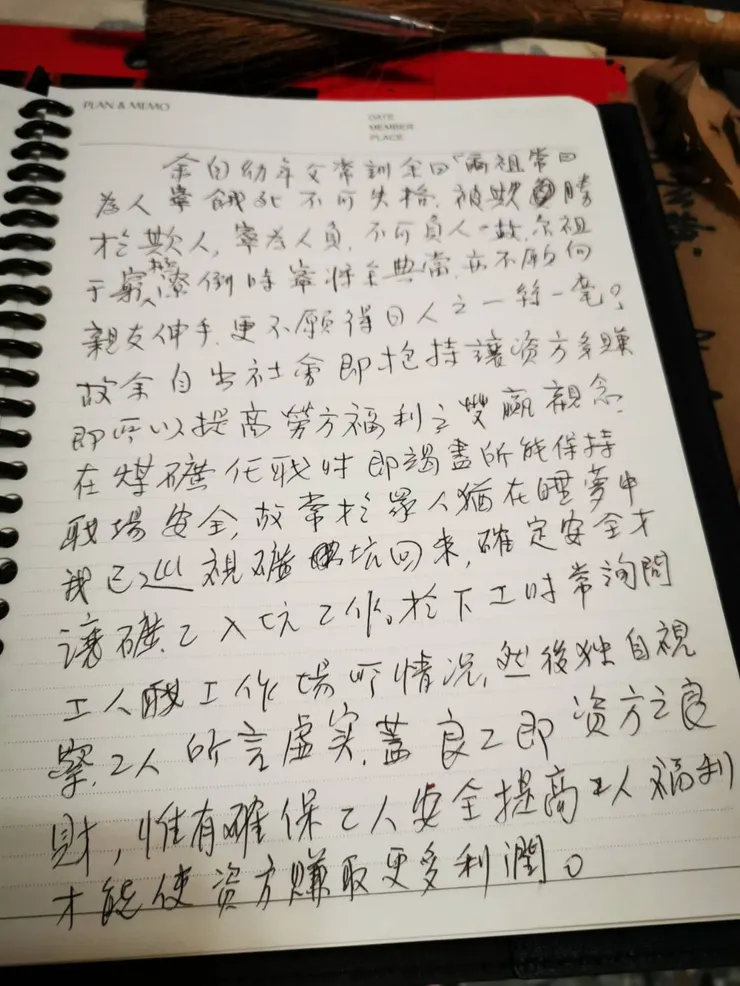 PLAN & MEMO
DATE
MEMBER
PLACE
余自幼年父常訓余曰「爾祖常曰
為人寧餓死不可失格,被欺勝
於欺人,寧為人負,不可負人」故尔祖
于窮極潦倒時寧將全典當,亦不願向
親友伸手,更不願得日人之一絲一毫?
故余自出社會即抱持讓資方多賺
即所以提高勞方福利之雙贏觀念
在煤礦任職時即竭盡所能保持
職場安全,故常於眾人猶在睡夢中
我已巡視礦坑回來,確定安全才
讓礦工入坑工作。於下工時常詢問
工人工作場所情況,然後独自視
察,工人所言虛实,蓋良工即資方之良
財,惟有確保工人安全提高工人福利
才能使資方賺取更多利潤。